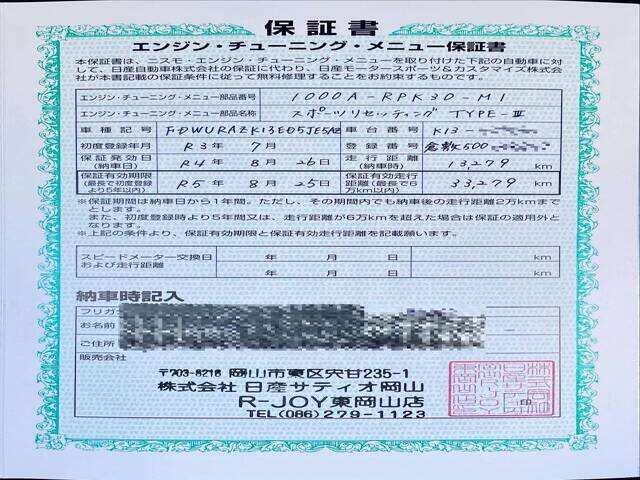 保証書
エンジン・チューニング・メニュー保証書
本保証書は、ニスモ・エンジン・チューニング・メニューを取り付けた下記の自動車に対
して、日産自動車株式会社の保証に代わり、日産モータースポーツ&カスタマイズ株式会
社が本書記載の保証条件に従って無料修理することをお約束するものです。
エンジン・チューニング・メニュー部品番号 1000A-RPK30-M1
エンジン・チューニング・メニュー部品名称 スポーツリセッティング TYPE-Ⅲ
車種記号 車台番号 K13-
初度登録年月 R3年 7月 登録番号 倉敷500
保証発効日 (納車日) R4年 8月 26日 走行距離 (納車時) 13,279 km
保証有効期限 (最長で初度登録より5年以内) R5年 8月 25日 保証有効走行距離(最長で6万km以内) 33,279 km
※保証期間は納車日から1年間。ただし、その期間内でも納車後の走行距離2万kmまで
とします。
また、初度登録時より5年間又は、走行距離が6万kmを超えた場合は保証の適用外と
なります。
※上記の条件より、保証有効期限と保証有効走行距離を記載願います。
スピードメーター交換日 年 月 日 km
および走行距離 年 月 日 km
納車時記入
フリガ
お名前
ご住所
販売会社
〒703-8216 岡山市東区宍甘235-1
株式会社 日産サティオ岡山
R-JOY東岡山店
TEL(086)279-1123